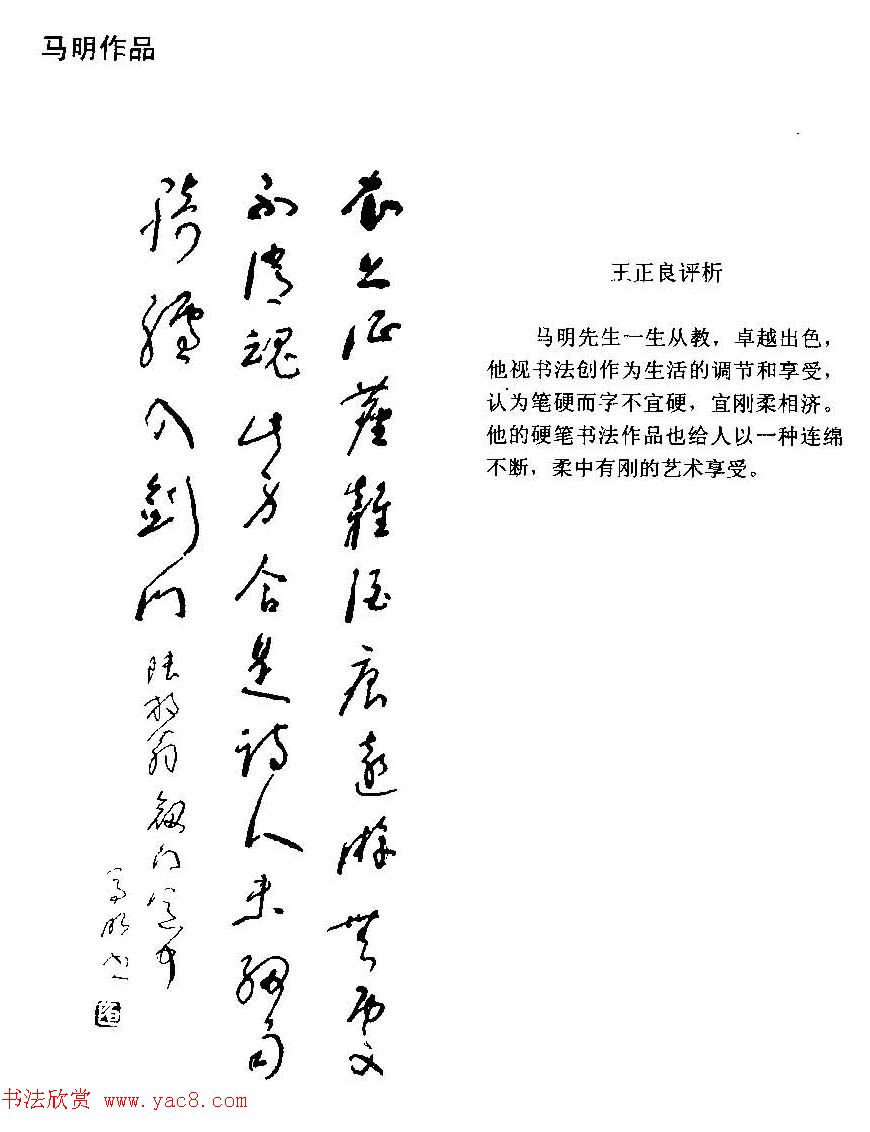 马明作品
衣上征塵雜酒痕遠游無處
不消魂此身合是詩人未細雨
騎驢入劍門
陸放翁劍门道中
馬明書
王正良评析
马明先生一生从教，卓越出色，
他视书法创作为生活的调节和享受，
认为笔硬而字不宜硬，宜刚柔相济。
他的硬笔书法作品也给人以一种连绵
不断，柔中有刚的艺术享受。
书法欣赏 www.yac8.com